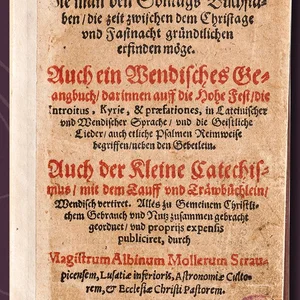 man den Sontags Buchsta-
ben / die zeit zwischen dem Christage
vnd Fasnacht gründtlichen
erfinden möge.
Auch ein Wendisches Ge-
sangbuch / darinnen auff die Hohe Fest / die
Introitus, Kyrie, & præfationes, in Lateinischer
vnd Wendischer Sprache / vnd die Geistliche
Lieder / auch etliche Psalmen Reimweise
begriffen / neben den Gebetlein.
Auch der Kleine Catechis-
mus / mit dem Tauff vnd Träwbüchlein /
Wendisch vertiret. Alles zu Gemeinem Christli-
chem Gebrauch vnd Nutz zusammen gebracht
geordnet / vnd propriis expensis
publiciret, durch
Magistrum Albinum Mollerum Strau-
picensem, Lusatiæ inferioris, Astronomiæ Culto-
rem, & Ecclesiæ Christi Pastorem.